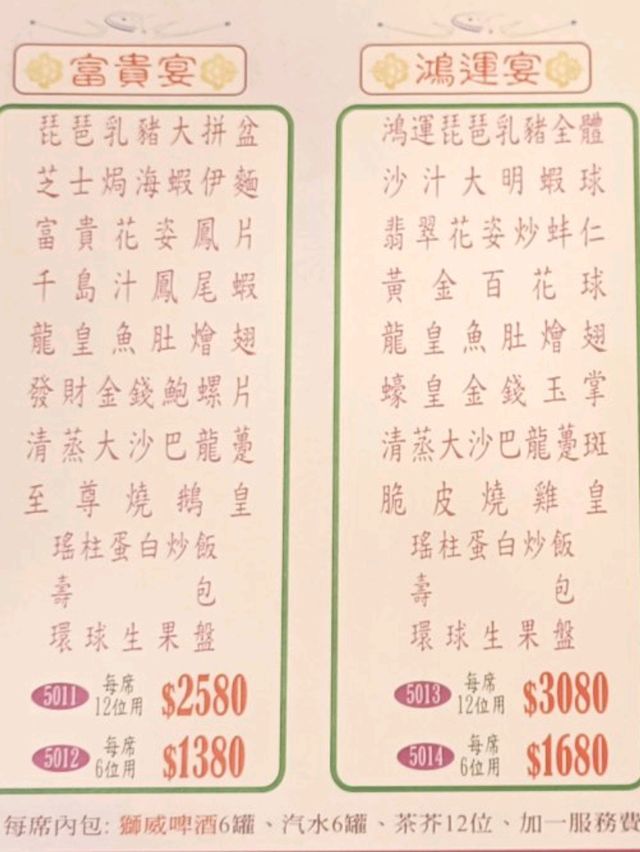 富貴宴
琵琶乳豬大拼盆
芝士焗海蝦伊麵
富貴花姿鳳片
千島汁鳳尾蝦
龍皇魚肚燴翅
發財金錢鮑螺片
清蒸大沙巴龍躉
至尊燒鵝皇
瑤柱蛋白炒飯
壽包
環球生果盤
5011 每席12位用 $2580
5012 每席6位用 $1380
鴻運宴
鴻運琵琶乳豬全體
沙汁大明蝦球
翡翠花姿炒蚌仁
黃金百花球
龍皇魚肚燴翅
蠔皇金錢玉掌
清蒸大沙巴龍躉斑
脆皮燒雞皇
瑤柱蛋白炒飯
壽包
環球生果盤
5013 每席12位用 $3080
5014 每席6位用 $1680
每席內包: 獅威啤酒6罐、汽水6罐、茶芥12位、加一服務費